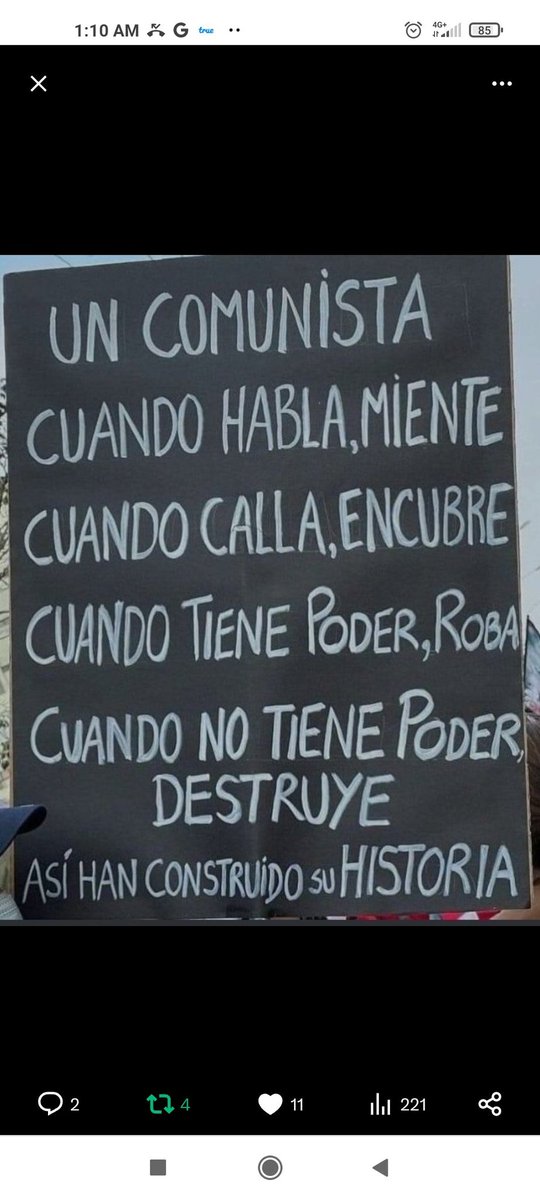 1:10 AM G true
4G+ 85
UN COMUNISTA
CUANDO HABLA, MIENTE
CUANDO CALLA, ENCUBRE
CUANDO TIENE PODER, ROBA
CUANDO NO TIENE PODER,
DESTRUYE
ASÍ HAN CONSTRUIDO SU HISTORIA
2 4 11 221